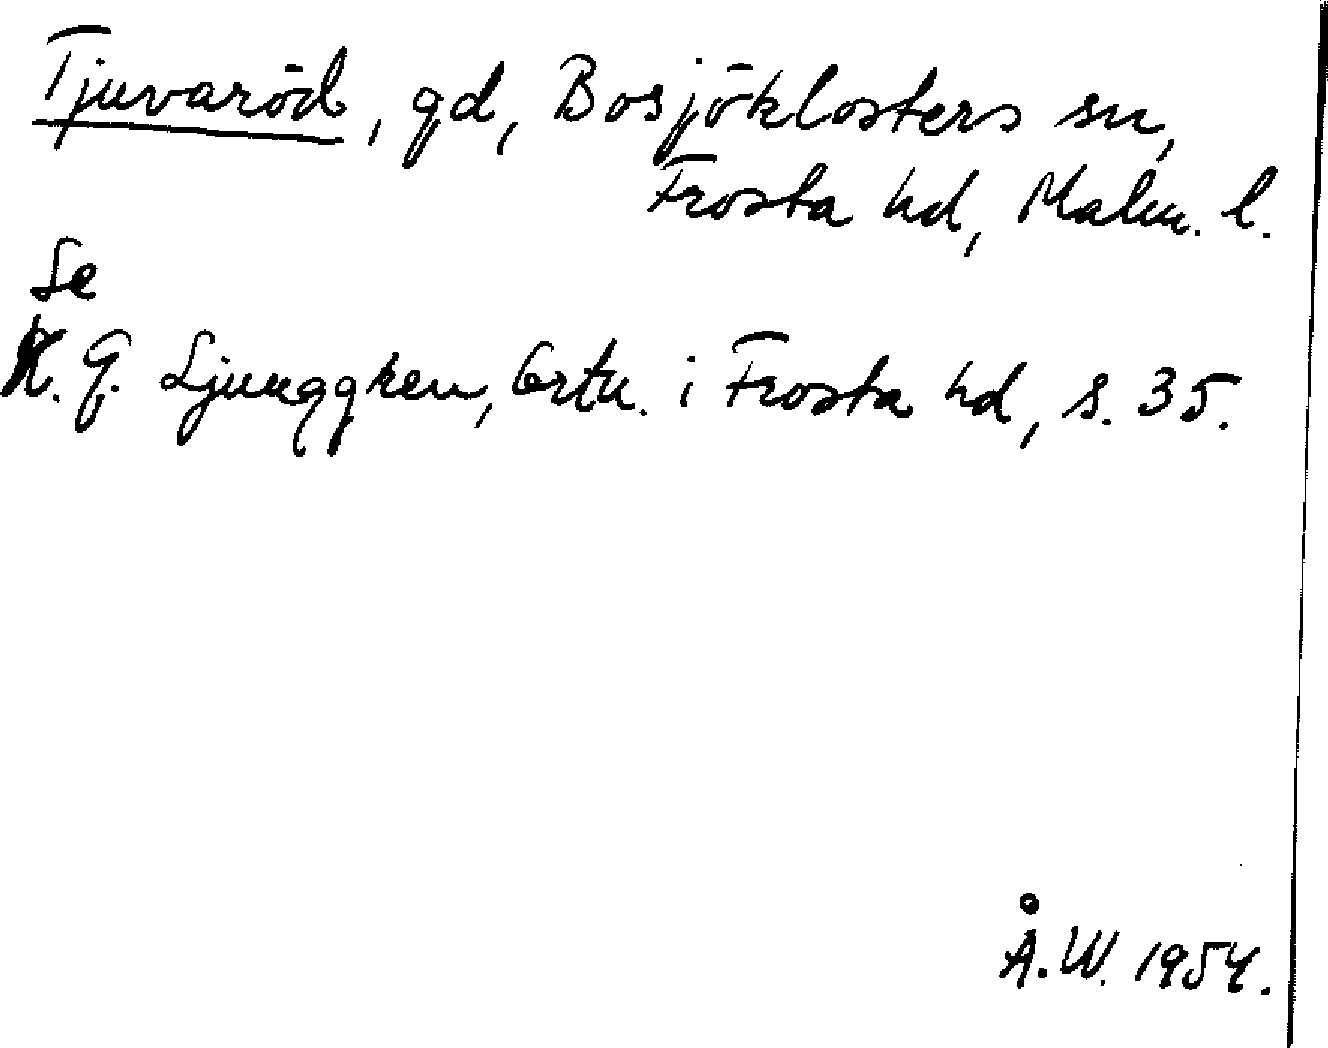 Tjuvaröd, gd, Bosjöklosters sn,
Frosta hd, Malm. l.
Se
K. G. Ljunggren, Ortn. i Frosta hd, s. 35.
Å. W. 1954.